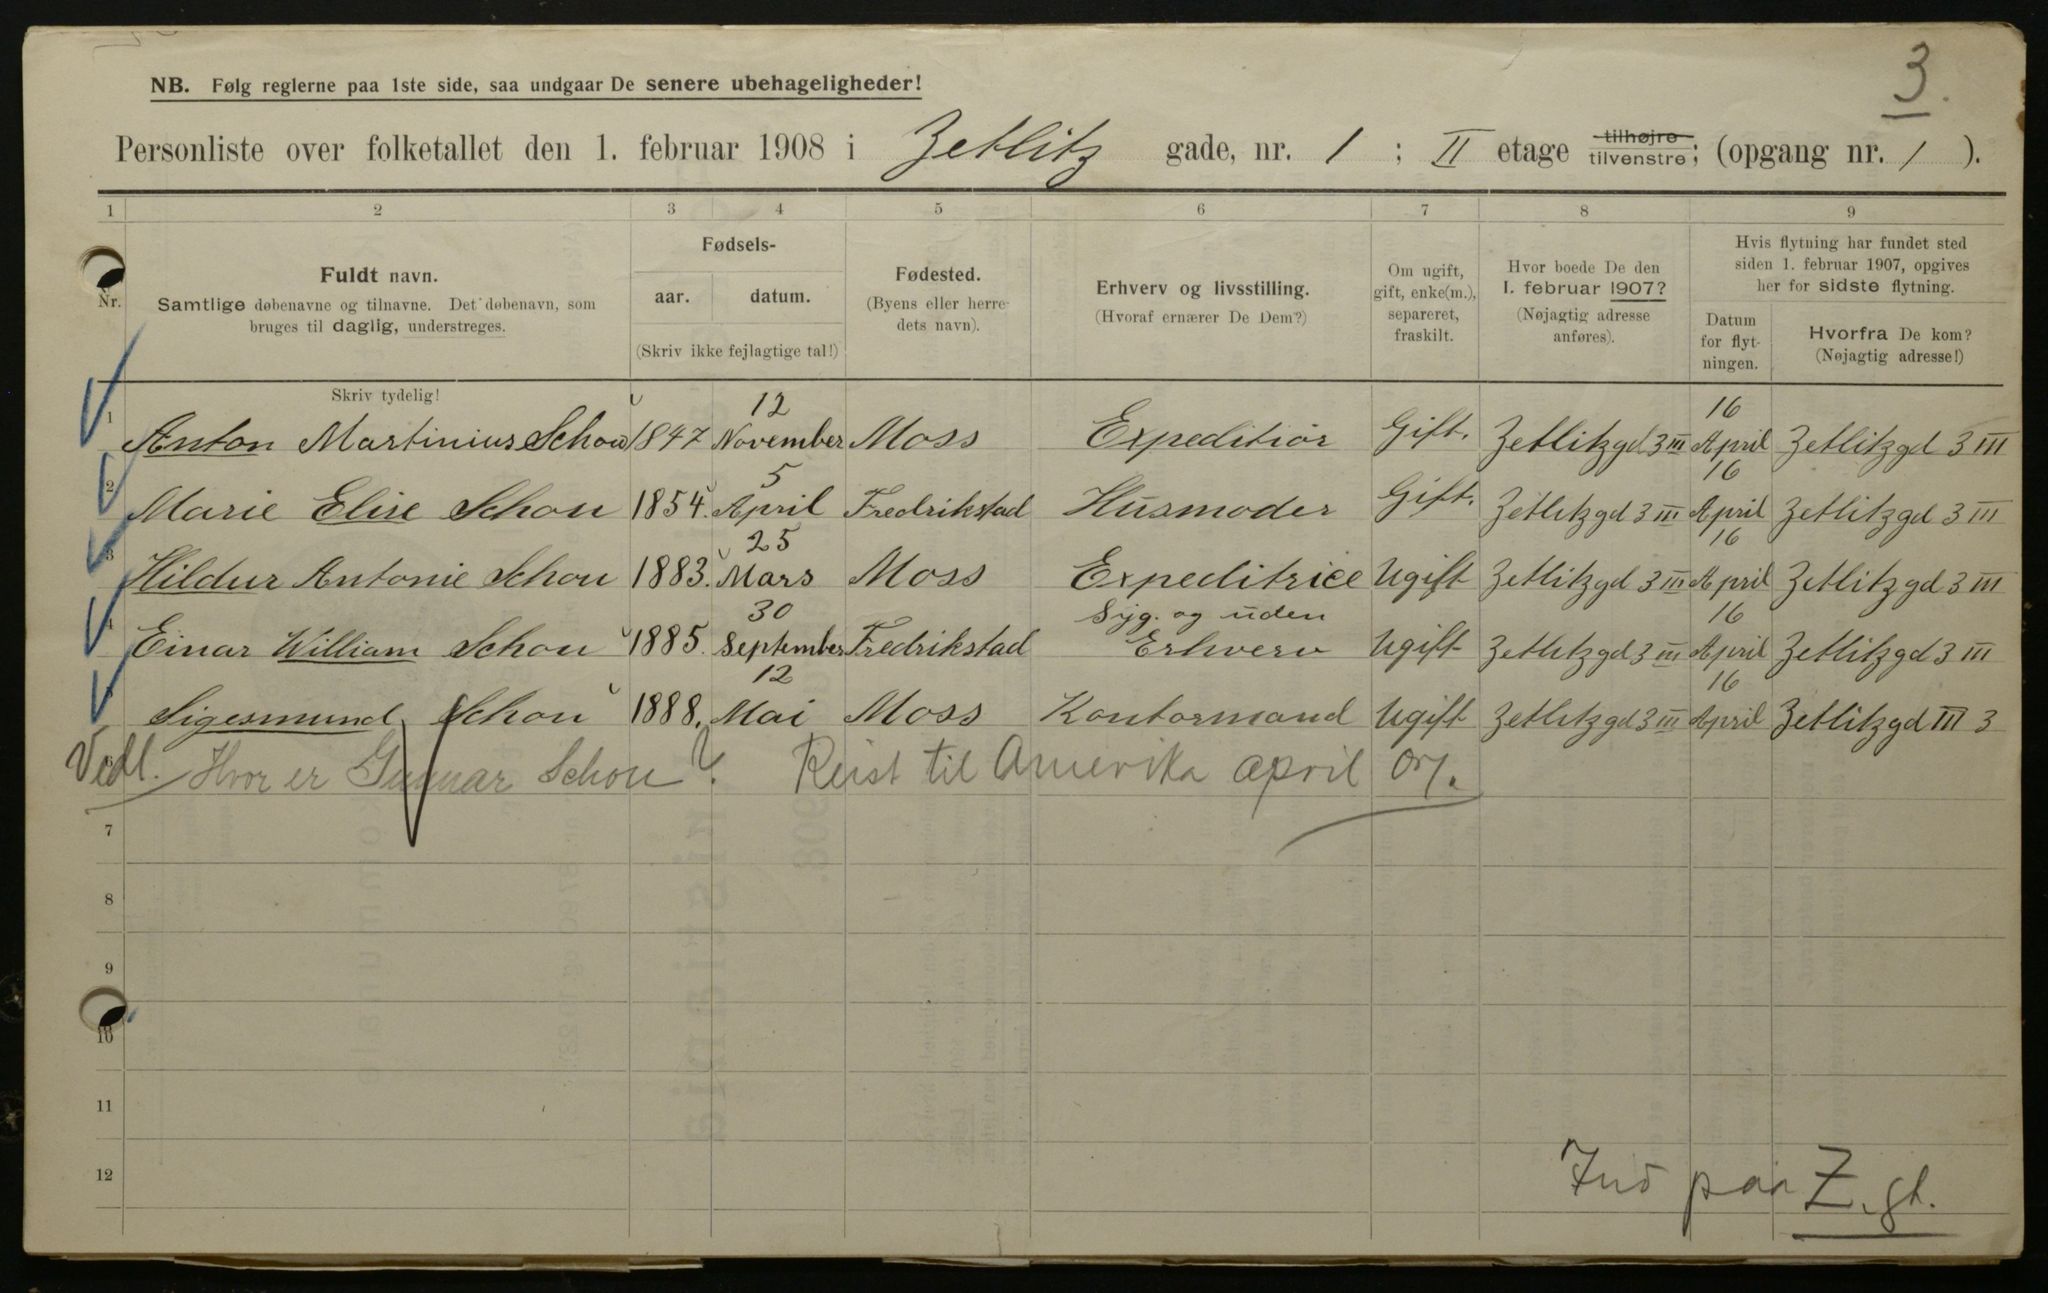 3.
NB. Følg reglerne paa 1ste side, saa undgaar De senere ubehageligheder!
Personliste over folketallet den 1. februar 1908 i Zetlitz gade, nr. 1 ; II etage tilhøjre tilvenstre; (opgang nr. 1 ).
1 2 3 4 5 6 7 8 9
Nr.
Fuldt navn.
Samtlige døbenavne og tilnavne. Det døbenavn, som
bruges til daglig, understreges.
Fødsels-
aar. datum.
(Skriv ikke fejlagtige tal!)
Fødested.
(Byens eller herre-
dets navn).
Erhverv og livsstilling.
(Hvoraf ernærer De Dem?)
Om ugift,
gift, enke(m.),
separeret,
fraskilt.
Hvor boede De den
1. februar 1907?
(Nøjagtig adresse
anføres).
Hvis flytning har fundet sted
siden 1. februar 1907, opgives
her for sidste flytning.
Datum
for flyt-
ningen.
Hvorfra De kom?
(Nøjagtig adresse!)
Skriv tydelig!
12 16
1 Anton Martinius Schou 1847 November Moss Expeditiør Gift. Zetlitzgd 3 III April Zetlitzgd 3 III
5 16
2 Marie Elise Schou 1854. April Fredrikstad Husmoder Gift. Zetlitzgd 3 III April Zetlitzgd 3 III
25 16
3 Hildur Antonie Schou 1883. Mars Moss Expeditrice Ugift Zetlitzgd 3 III April Zetlitzgd 3 III
30 Syg. og uden 16
4 Einar William Schou 1885. September Fredrikstad Erhverv Ugift Zetlitzgd 3 III April Zetlitzgd 3 III
12 16
5 Sigesmund Schou 1888. Mai Moss Kontormand Ugift Zetlitzgd 3 III April Zetlitzgd III 3
6 Vedl. Hvor er Gunnar Schou? Reist til Amerika april 07.
7
8
9
10
11
12
Ind paa Z. gt.